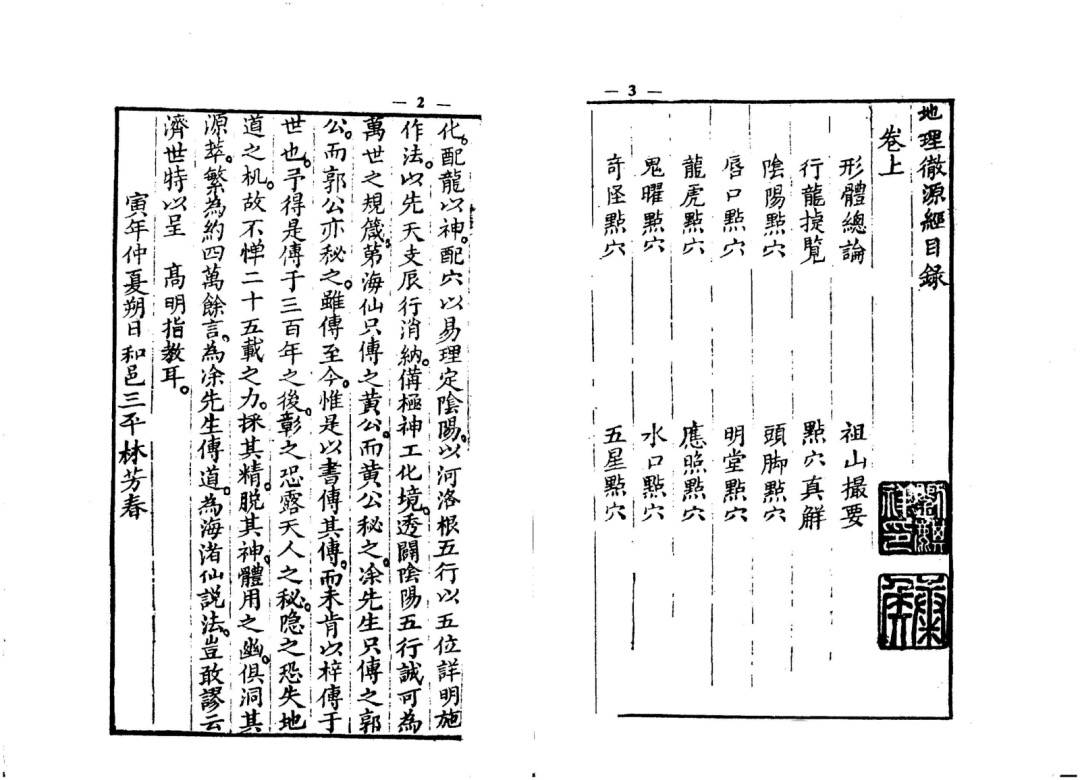 — 2 —
化。配龍以神。配穴以易理定陰陽。以河洛根五行以五位詳明施
作法。以先天支辰行消納。備極神工化境。透闢陰陽五行誠可為
萬世之規箴。第海仙只傳之黃公。而黃公秘之。涂先生只傳之郭
公。而郭公亦秘之。雖傳至今。惟是以書傳其傳。而未肯以梓傳于
世也。予得是傳于三百年之後。彰之恐露天人之秘。隐之恐失地
道之机。故不惮二十五載之力。採其精。脱其神。體用之幽。俱洞其
源。萃繁為約四萬餘言。為涂先生傳道。為海渚仙説法。豈敢謬云
濟世特以呈 高明指教耳。
寅年仲夏朔日和邑三平林芳春
— 3 —
地理徹源經目錄
卷上
形體總論 祖山撮要
行龍㨗覧 點穴真解
陰陽點穴 頭脚點穴
唇口點穴 明堂點穴
龍虎點穴 應照點穴
鬼曜點穴 水口點穴
奇怪點穴 五星點穴